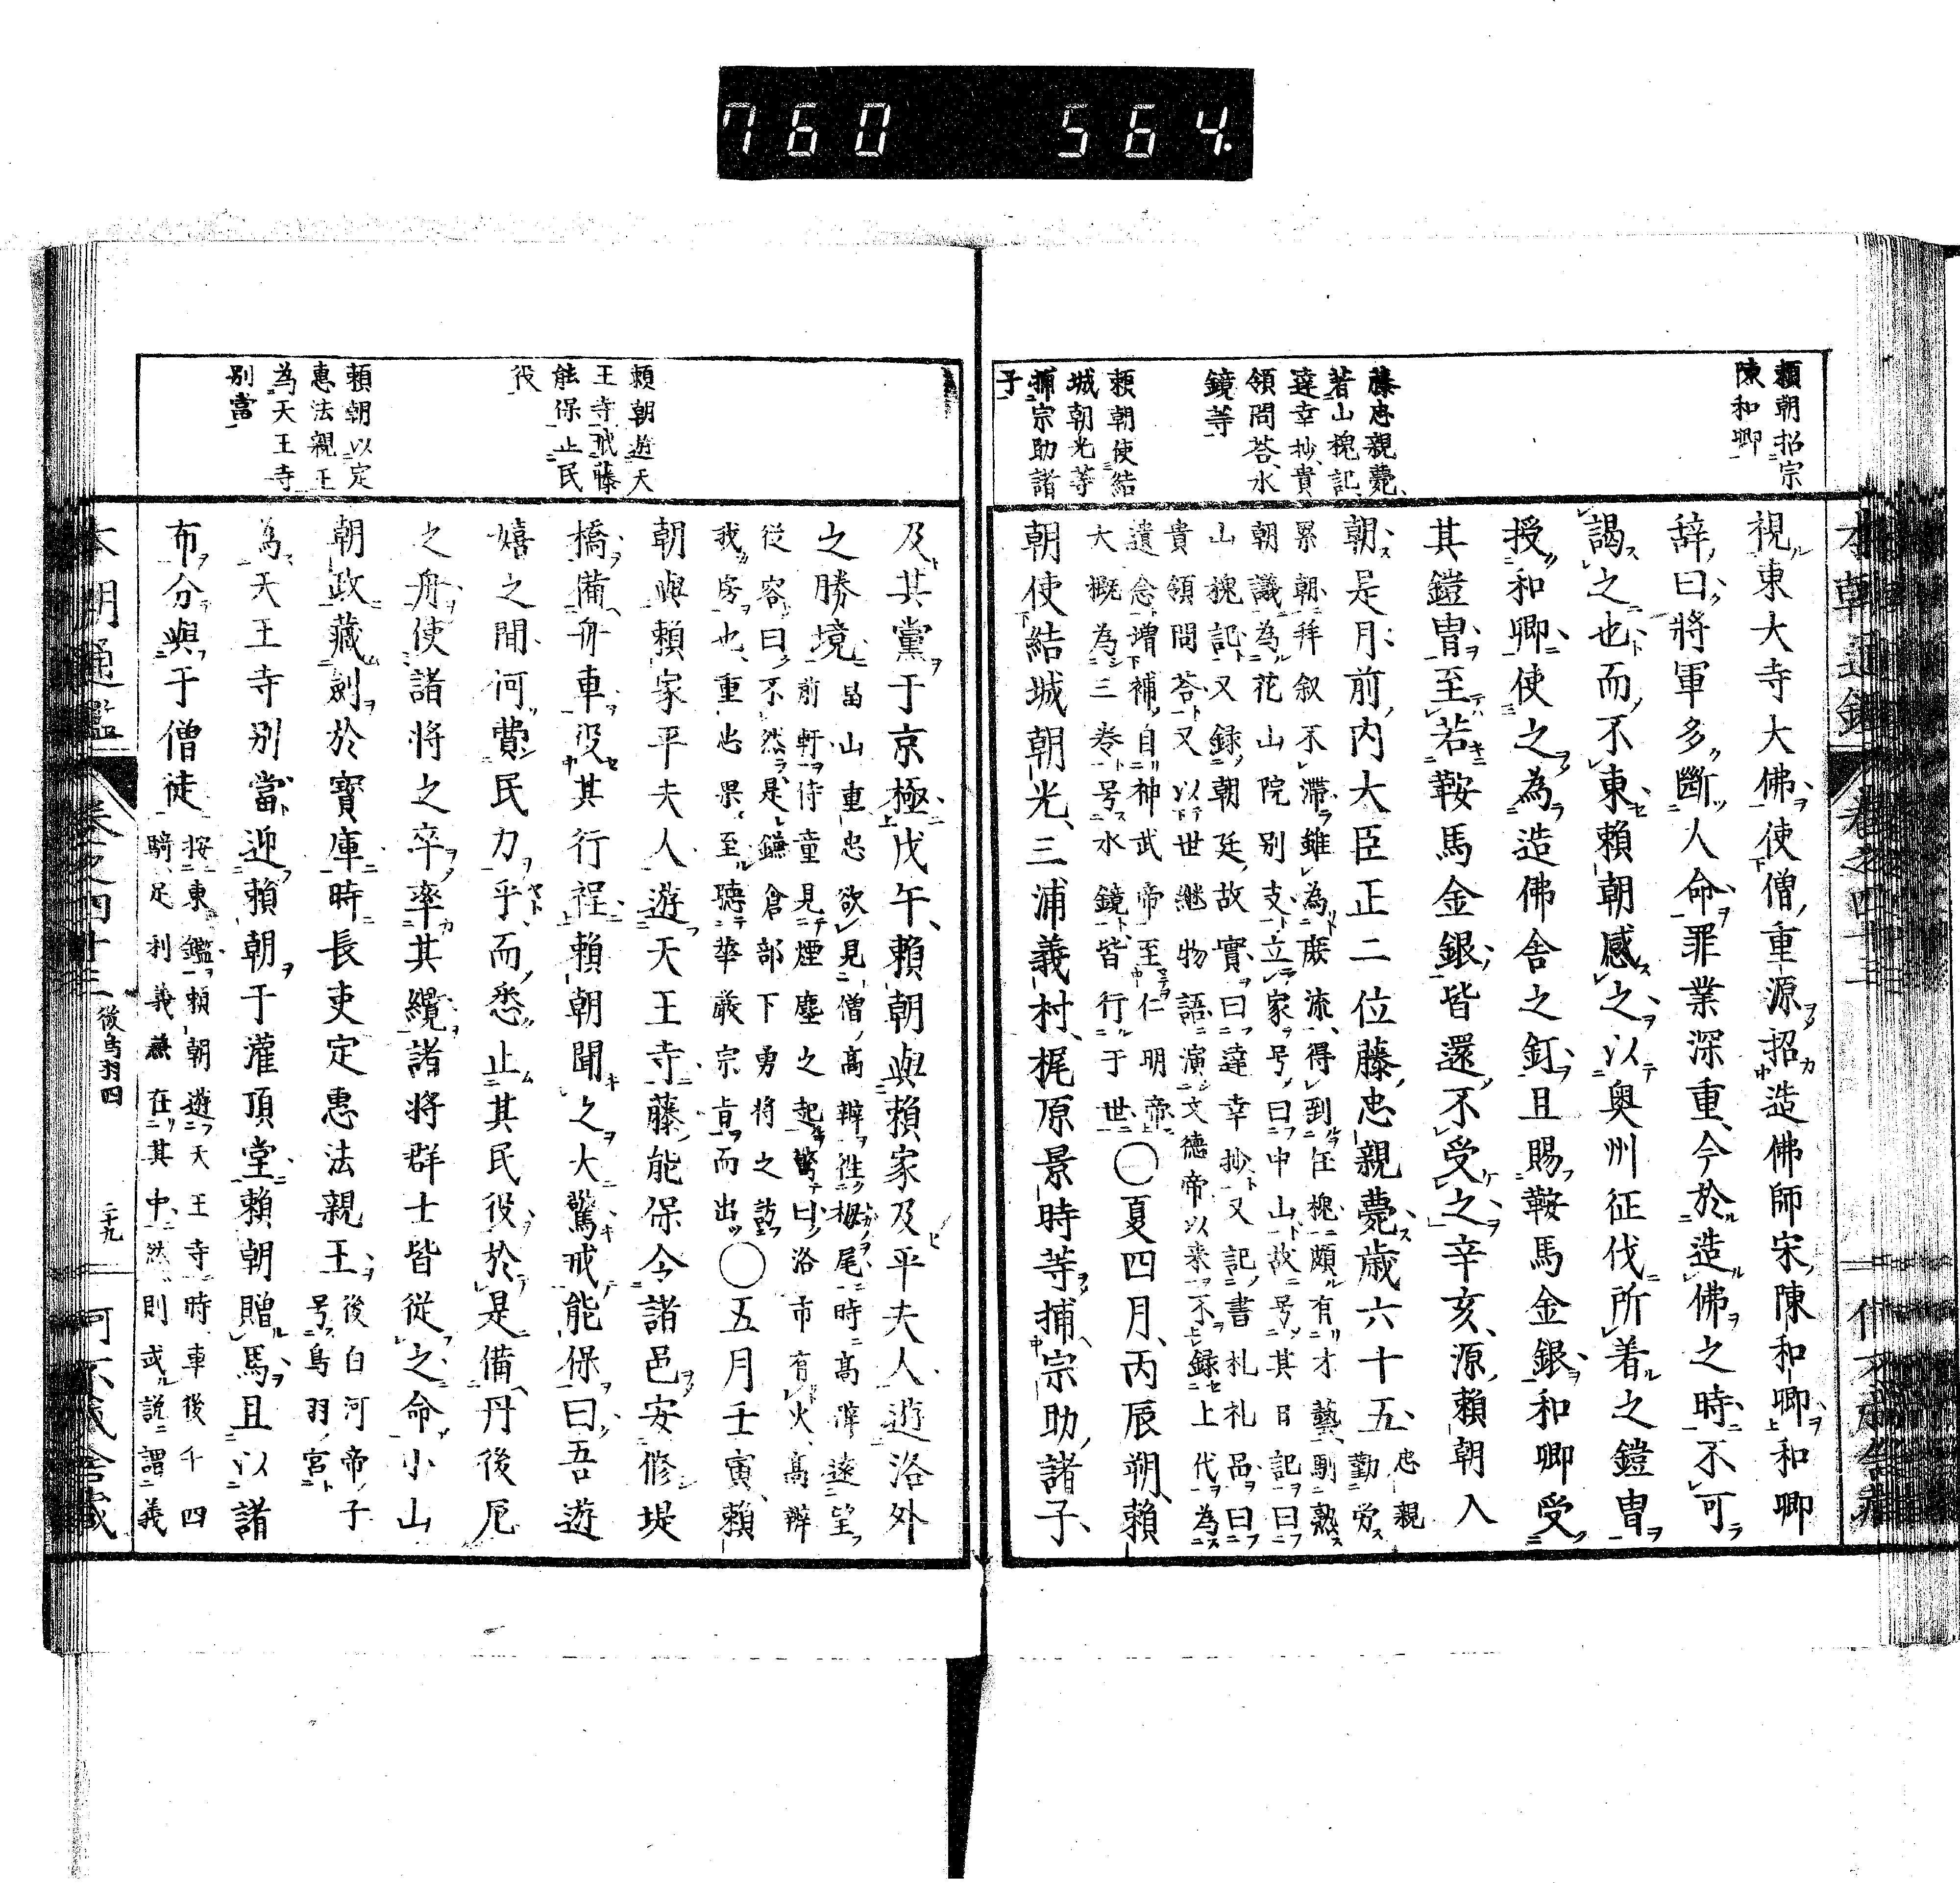 760 564
頼朝招宗
陳和卿
藤忠親薨
著山槐記
達幸抄貴
領問答水
鏡等
頼朝使結
城朝光等
捕宗助諸
子
視東大寺大佛使僧重源招造佛師宋陳和卿和卿
辞曰將軍多斷人命罪業深重今於造佛之時不可
謁之也而不東頼朝感之以奥州征伐所着之鎧冑
授和卿使之為造佛舎之釘且賜鞍馬金銀和卿受
其鎧冑至若鞍馬金銀皆還不受之辛亥源頼朝入
朝是月前内大臣正二位藤忠親薨歳六十五忠親勤労
累朝拜叙不滯雖為庶流得到任槐頗有才藝馴熟
朝議為花山院別支立家号曰中山故号其日記曰
山槐記又録朝廷故實曰達幸抄又記書札礼品曰
貴領問答又以世継物語演文德帝以来不録上代為
遺念増補自神武帝至仁明帝
大概為三巻号水鏡皆行于世○夏四月丙辰朔頼
朝使結城朝光三浦義村梶原景時等捕宗助諸子
頼朝遊天
王寺戒藤
能保止民
役
頼朝以定
惠法親王
為天王寺
別當
及其黨于京極戊午頼朝與頼家及平夫人遊洛外
之勝境畠山重忠欲見僧高辯往栂尾時高辯遠望
前軒侍童見煙塵之起驚曰洛市有火高辯
從容曰不然是鎌倉部下勇將之
我房也重忠果至聴華厳宗旨而出○五月壬寅頼
朝與頼家平夫人遊天王寺藤能保令諸邑安修堤
橋備舟車役其行程頼朝聞之大驚戒能保曰吾遊
嬉之間何費民力乎而悉止其民役於是備丹後局
之舟使諸将之卒率其纜諸将群士皆從之命小山
朝政藏劍於寶庫時長吏定惠法親王後白河帝子号鳥羽宮
為天王寺別當迎頼朝于灌頂堂頼朝贈馬且以諸
布分與于僧徒按東鑑頼朝遊天王寺時車後千四
騎足利義兼在其中然則或説謂義
本朝通鑑 巻之四十三 後鳥羽四 三十九